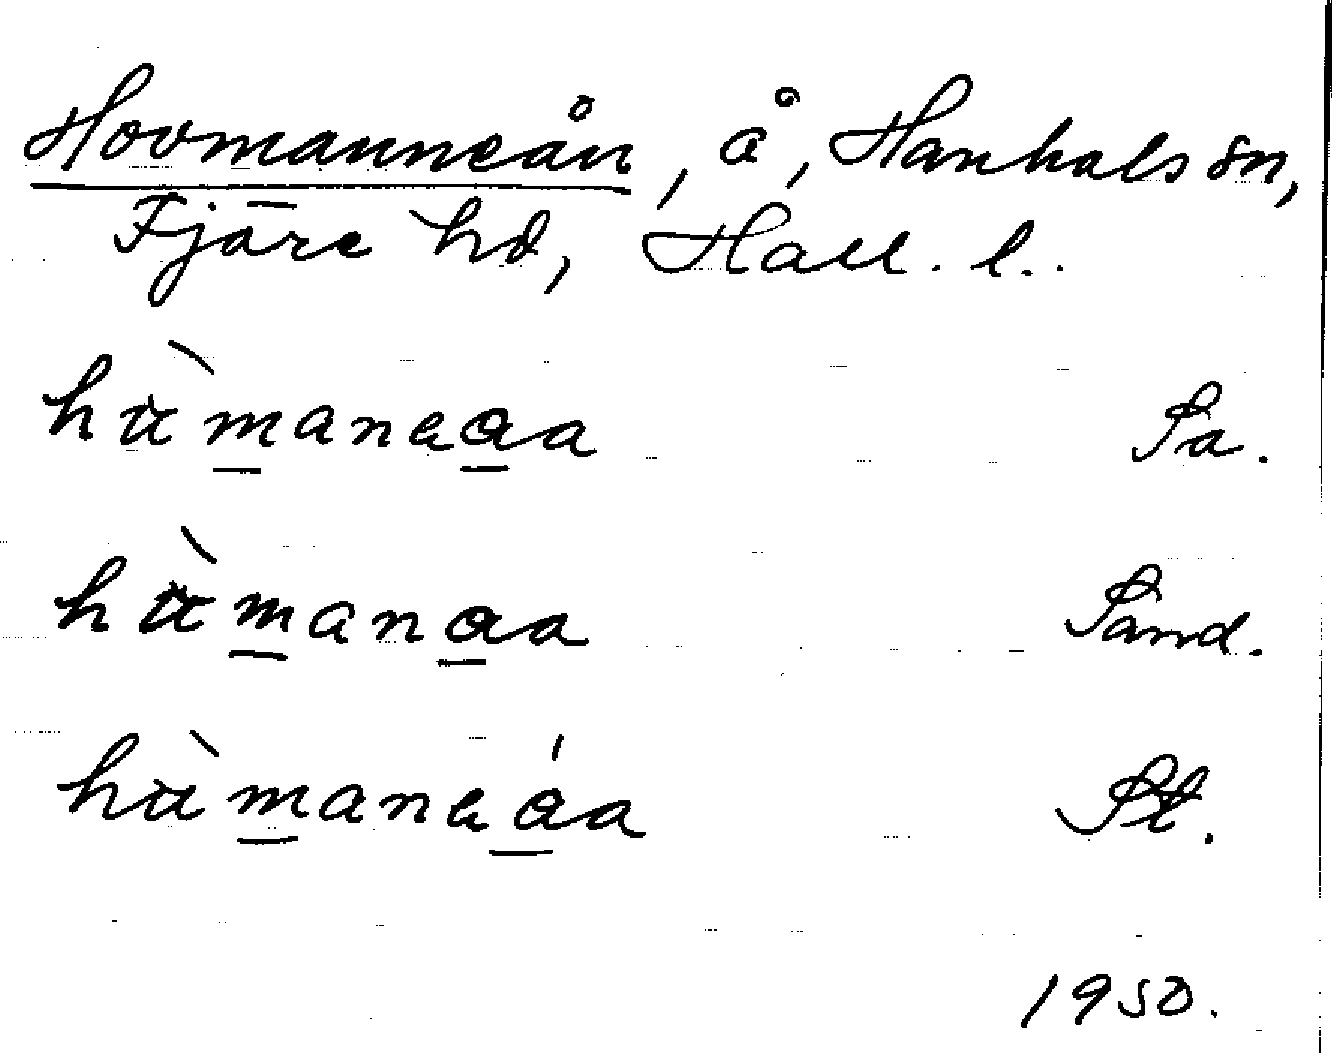 Hovmanneån, å, Hanhals sn,
Fjäre hd, Hall. l.
hùmaneaa Sa.
hùmanaa Sand.
hùmaneáa St.
1950.